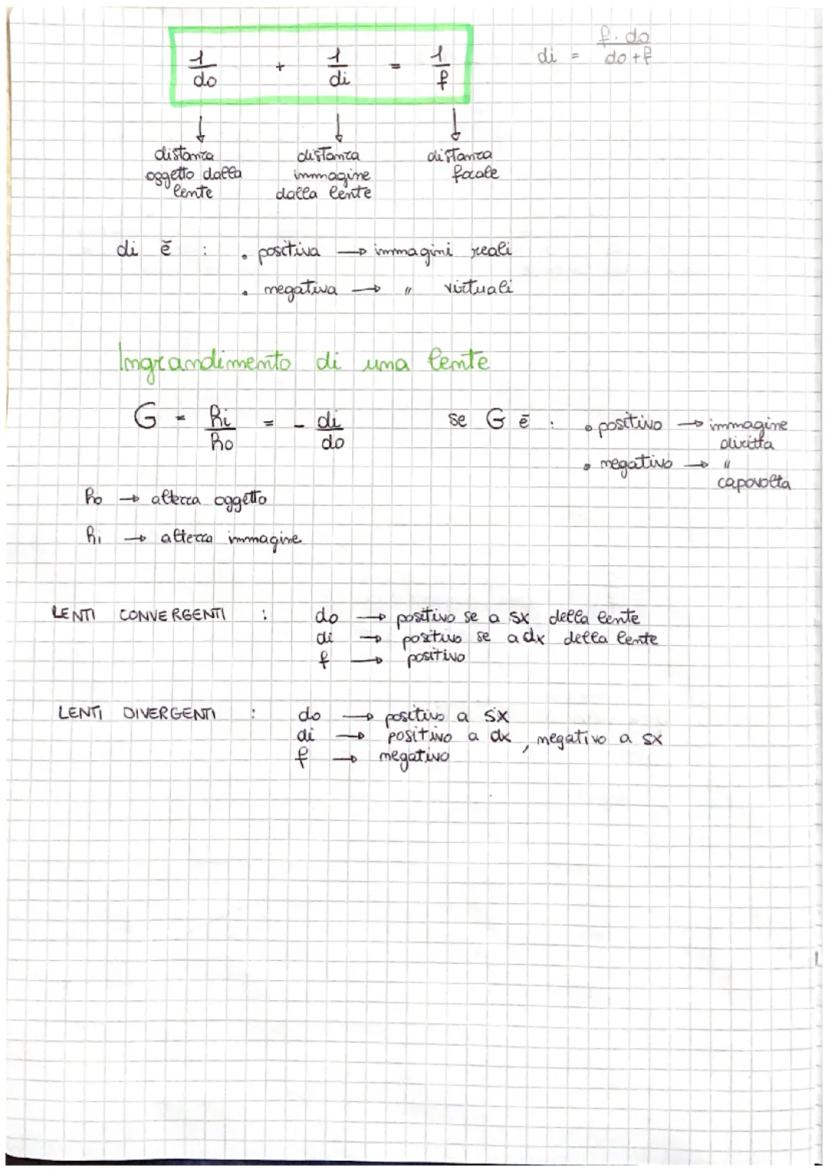 1/do + 1/di = 1/f
di = f · do / do + f
distanza oggetto dalla lente
distanza immagine dalla lente
distanza focale
di è : • positiva → immagini reali
• negativa → " virtuali
Ingrandimento di una lente
G = hi/ho = - di/do
se G è : • positivo → immagine diritta
• negativo → " capovolta
ho → altezza oggetto
hi → altezza immagine
LENTI CONVERGENTI : do → positivo se a sx della lente
di → positivo se a dx della lente
f → positivo
LENTI DIVERGENTI : do → positivo a sx
di → positivo a dx, negativo a sx
f → negativo